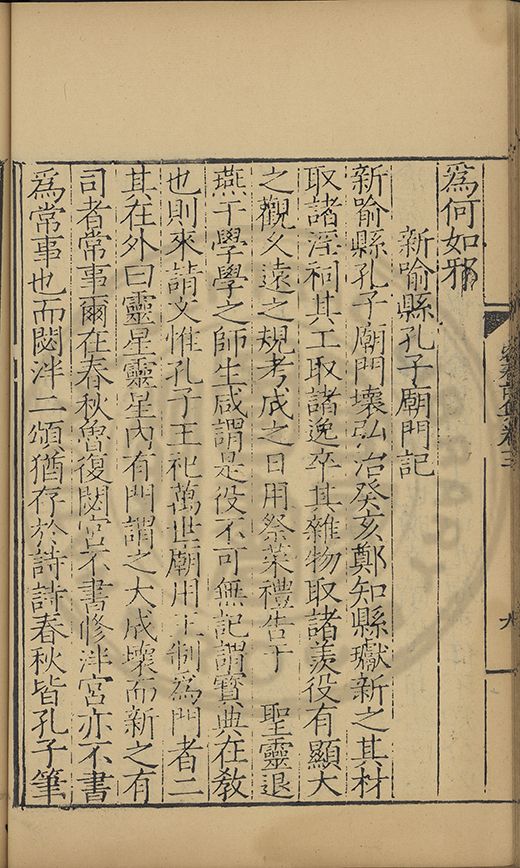 為何如邪
新喻縣孔子廟門記
新喻縣孔子廟門壞弘治癸亥鄭知縣瓛新之其材
取諸淫祠其工取諸逸卒其雜物取諸羨役有顯大
之觀久遠之規考成之日用祭菜禮告于 聖靈退
燕于學學之師生咸謂是役不可無記謂寳典在敎
也則來請文惟孔子王祀萬世廟用王制為門者二
其在外曰靈星靈星內有門謂之大成壞而新之有
司者常事爾在春秋魯復閟宮不書修泮宮亦不書
為常事也而閟泮二頌猶存於詩詩春秋皆孔子筆
卷三
九